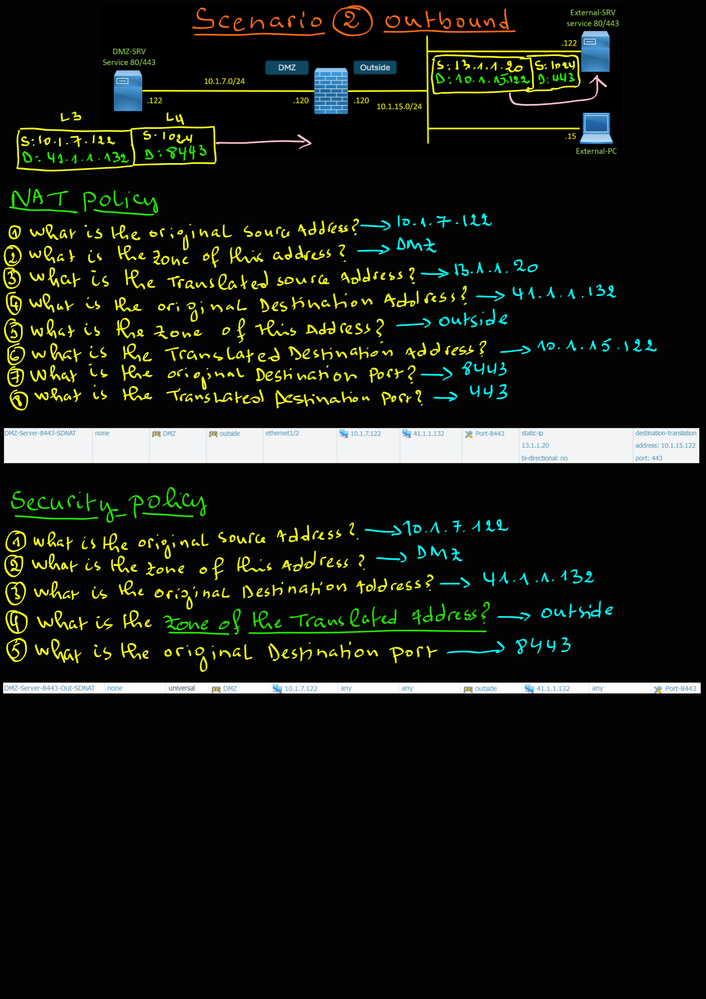 Scenario ② outbound
External-SRV
service 80/443
DMZ-SRV
Service 80/443
.122
DMZ
Outside
S: 13.1.1.20 S: 1024
D: 10.1.15.122 D: 443
10.1.7.0/24
.122
.120
.120
10.1.15.0/24
L3 L4
S: 10.1.7.122 S: 1024
D: 41.1.1.132 D: 8443
.15
External-PC
NAT Policy
① what is the original source Address? → 10.1.7.122
② what is the zone of this address? → DMZ
③ what is the Translated source Address? → 13.1.1.20
④ what is the original Destination Address? → 41.1.1.132
⑤ what is the zone of this Address? → outside
⑥ what is the Translated Destination Address? → 10.1.15.122
⑦ what is the original Destination Port? → 8443
⑧ what is the Translated Destination Port? → 443
DMZ-Server-8443-SDNAT none DMZ outside ethernet1/2 10.1.7.122 41.1.1.132 Port-8443 static-ip destination-translation
13.1.1.20 address: 10.1.15.122
bi-directional: no port: 443
Security policy
① what is the original source Address? → 10.1.7.122
② what is the zone of this Address? → DMZ
③ what is the original Destination Address? → 41.1.1.132
④ what is the zone of the Translated Address? → outside
⑤ what is the original Destination port → 8443
DMZ-Server-8443-Out-SDNAT none universal DMZ 10.1.7.122 any any outside 41.1.1.132 any Port-8443